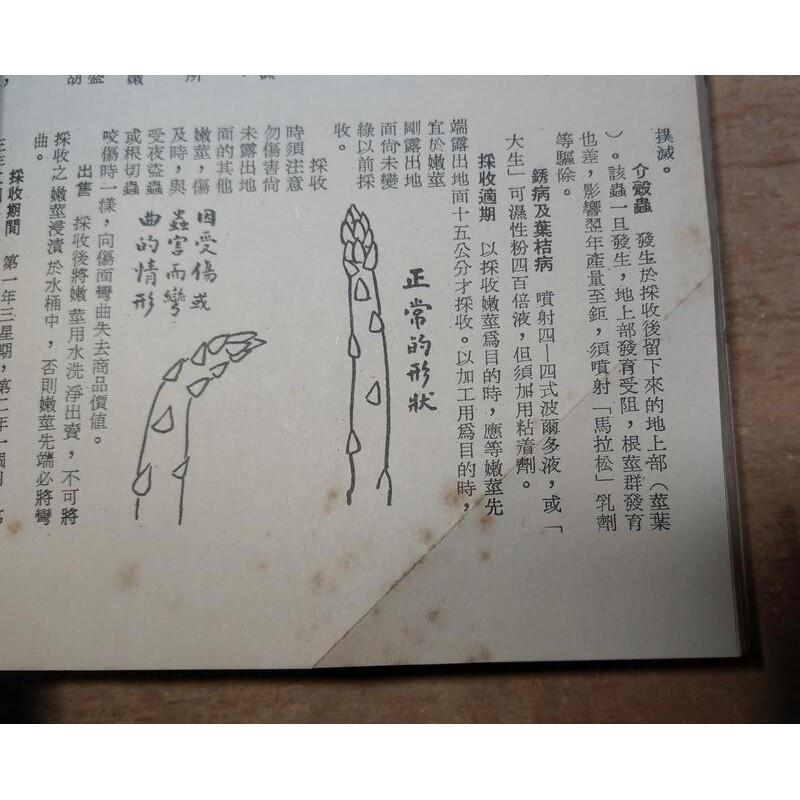 撲滅。
介殼蟲　發生於採收後留下來的地上部（莖葉
）。該蟲一旦發生，地上部發育受阻，根莖群發育
也差，影響翌年產量至鉅，須噴射「馬拉松」乳劑
等驅除。
銹病及葉枯病　噴射四—四式波爾多液，或「
大生」可濕性粉四百倍液，但須加用粘着劑。
採收適期　以採收嫩莖爲目的時，應等嫩莖先
端露出地面十五公分才採收。以加工用爲目的時，
宜於嫩莖
剛露出地
面尚未變
綠以前採
收。
正常的形狀
採收
時須注意
勿傷害尚
未露出地
面的其他
嫩莖，傷
及時，與
受夜盜蟲
或根切蟲
咬傷時一樣，向傷面彎曲失去商品價值。
因受傷或
蟲害而彎
曲的情形
出售　採收後將嫩莖用水洗淨出賣，不可將
採收之嫩莖浸漬於水桶中，否則嫩莖先端必將彎
曲。
採收期間　第一年三星期，第二年一個月，